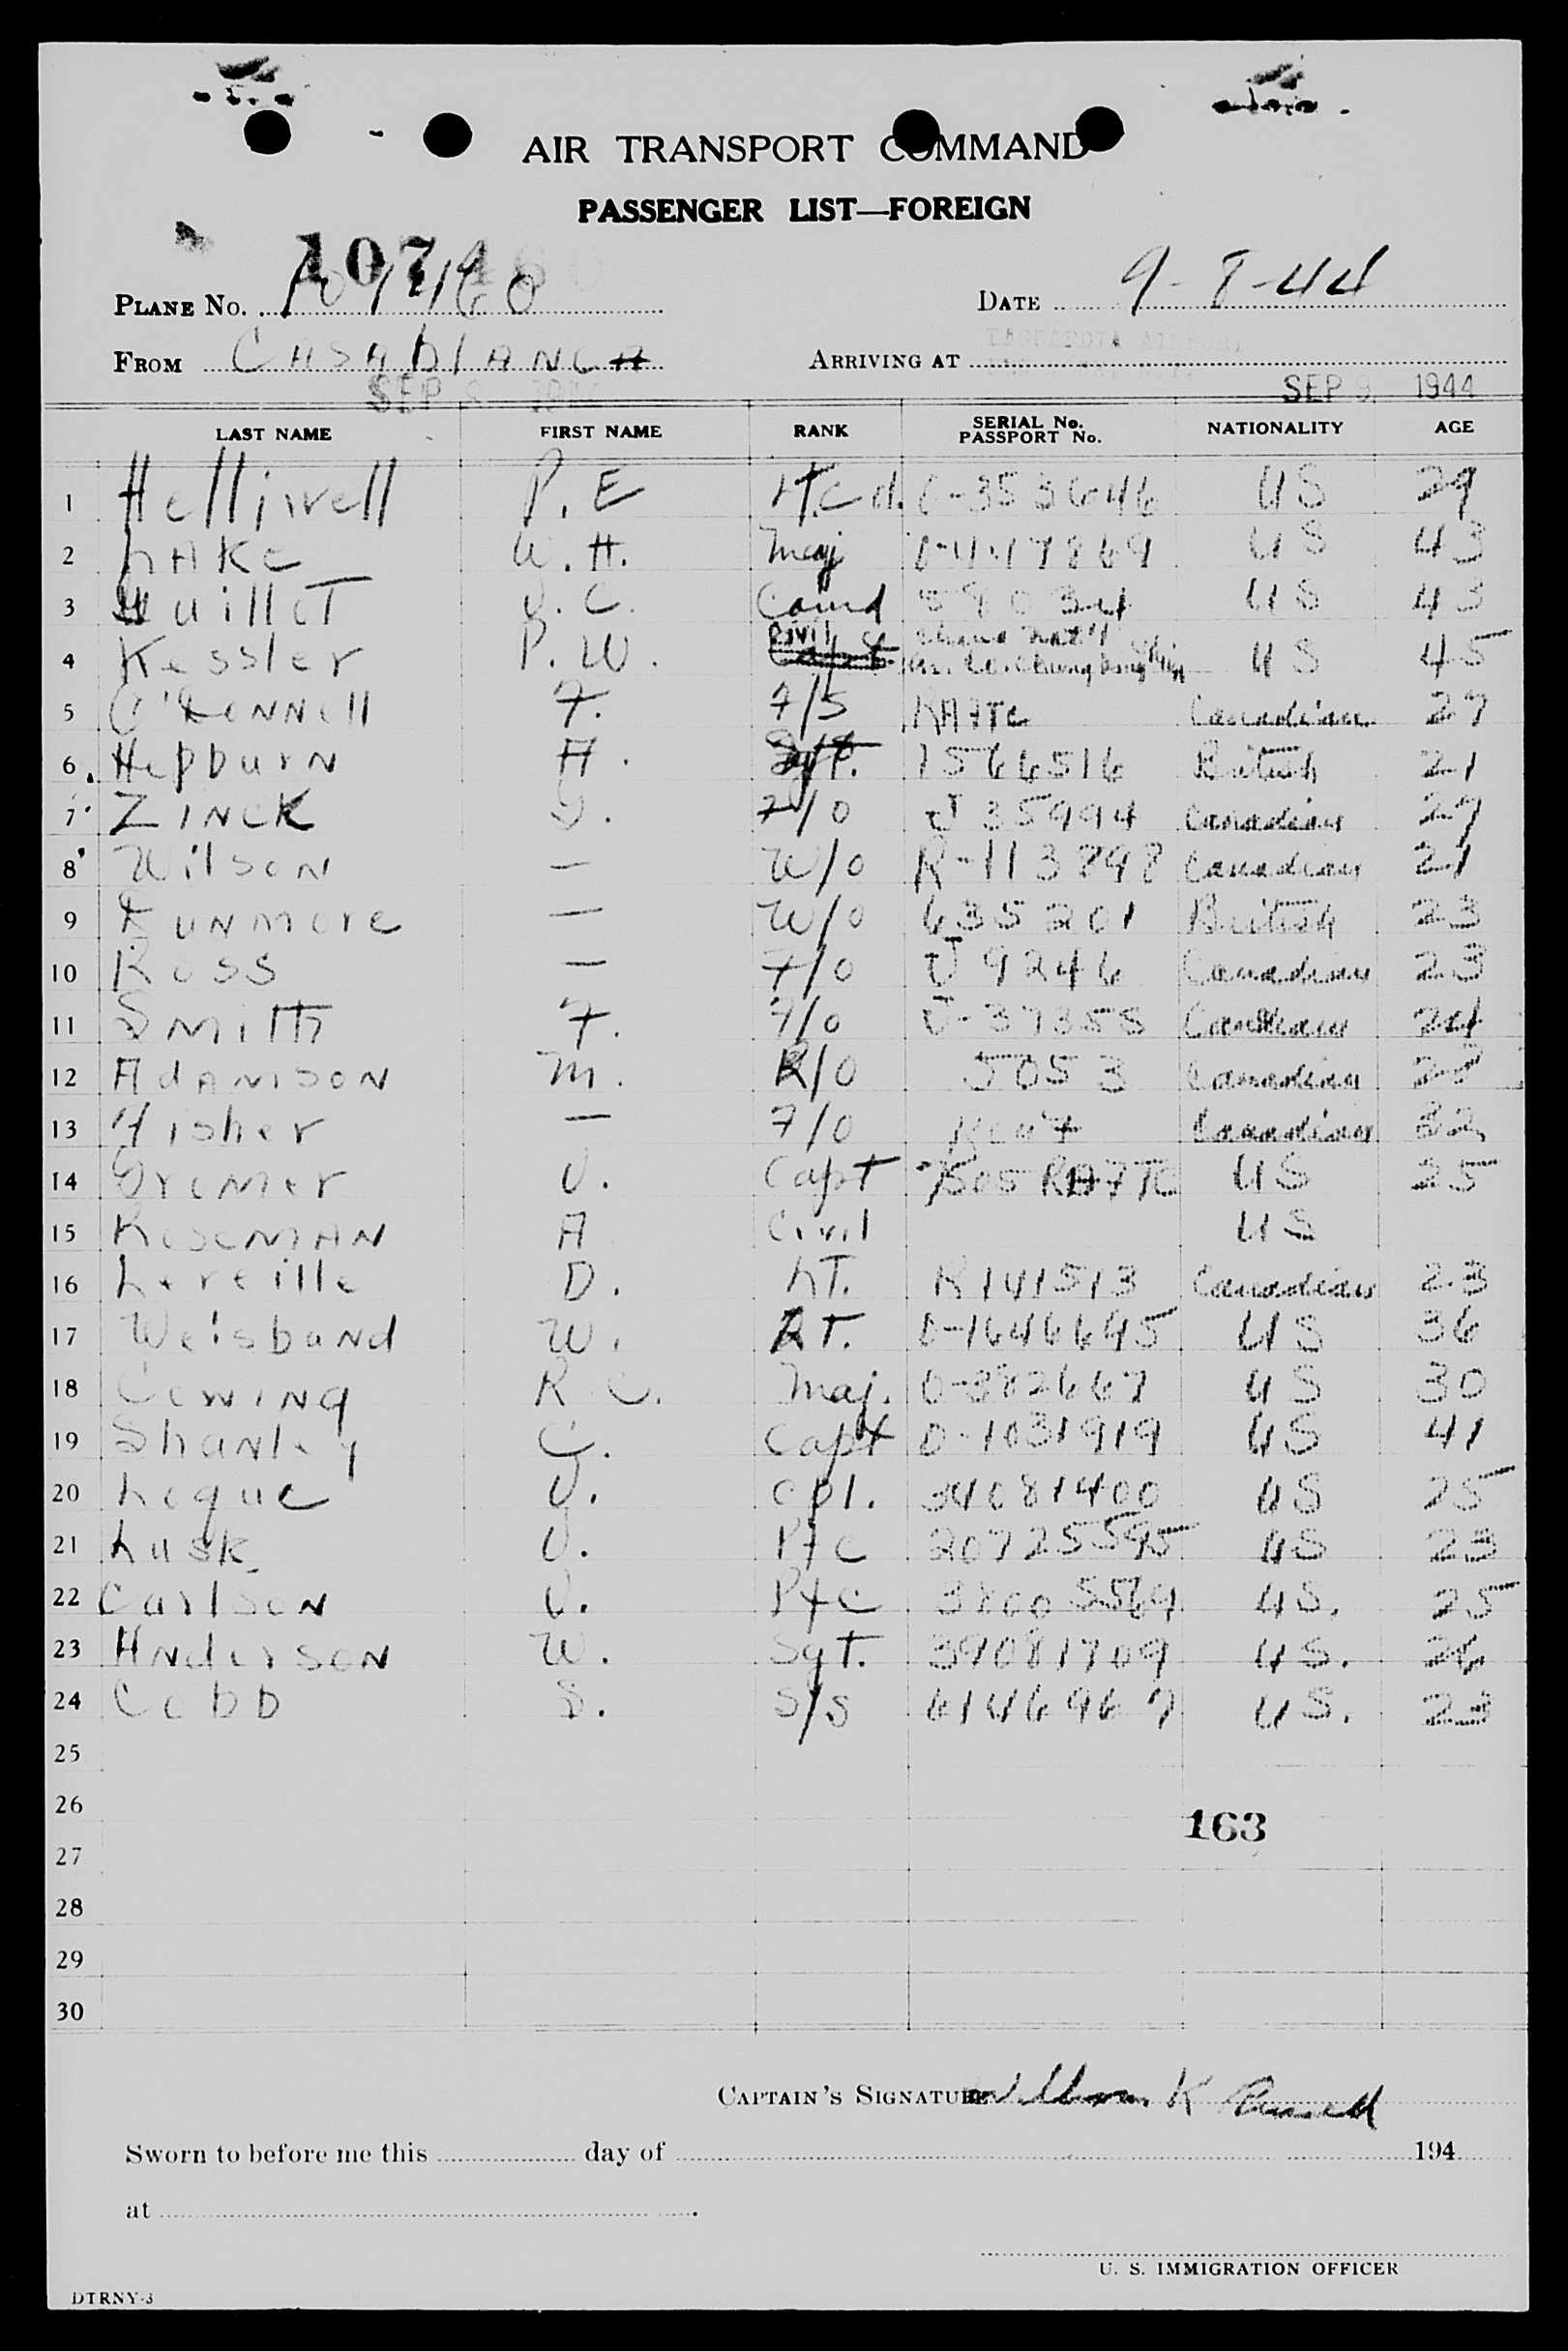 AIR TRANSPORT COMMAND
PASSENGER LIST—FOREIGN
PLANE No. 107460
DATE 9-8-44
FROM CASABLANCA
ARRIVING AT
SEP 9 1944
LAST NAME FIRST NAME RANK SERIAL No. PASSPORT No. NATIONALITY AGE
1 Helliwell P. E Lt. Col. O-353646 US 29
2 LAKE W. H. Maj O-447869 US 43
3 J. C. Comd US 43
4 Kessler P. W. Civil US 45
5 O'Donnell F. F/S RAFTC Canadian 27
6 Hepburn A. Sgt. 1566516 British 21
7 ZINCK J. F/O J 35994 Canadian 29
8 Wilson — W/O R-113898 Canadian 21
9 Dunmore — W/O 635201 British 23
10 Ross — F/O J 9246 Canadian 23
11 SMITH F. F/O J-37355 Canadian 24
12 ADAMSON M. R/O 5053 Canadian
13 Fisher — F/O Canadian 32
14 J. Capt 7505 RAFTC US 25
15 ROSEMAN A Civil US
16 D. LT. R 141513 Canadian 23
17 Weisband W. LT. O-1646695 US 36
18 COWING R C. Maj. O-382667 US 30
19 Shanley C. Capt O-1031919 US 41
20 Logue J. Cpl. 34081400 US 25
21 Lusk J. Pfc 20725595 US 23
22 Carlson J. Pfc 38005569 US. 25
23 Anderson W. Sgt. 39081709 US. 26
24 Cobb S. S/S 6146967 US. 23
25
26
163
27
28
29
30
CAPTAIN'S SIGNATURE William K
Sworn to before me this day of 194
at
U. S. IMMIGRATION OFFICER
DTRNY-3